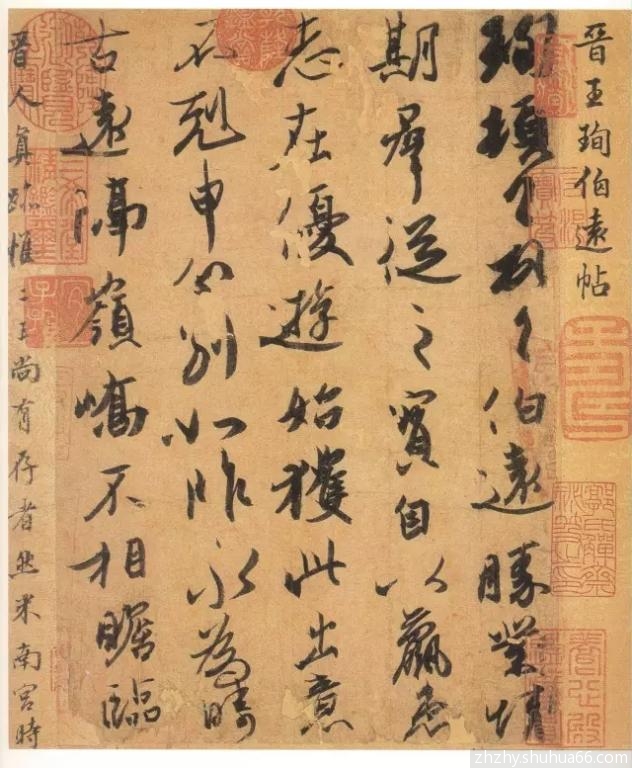 晉王珣伯遠帖
珣頓首頓首伯遠勝業情
期羣從之寶自以羸患
志在優遊始獲此出意
不剋申分別如昨永為疇
古遠隔嶺嶠不相瞻臨
晉人真跡惟二王尚有存者然米南宮時
zhzhy.shuhua66.com